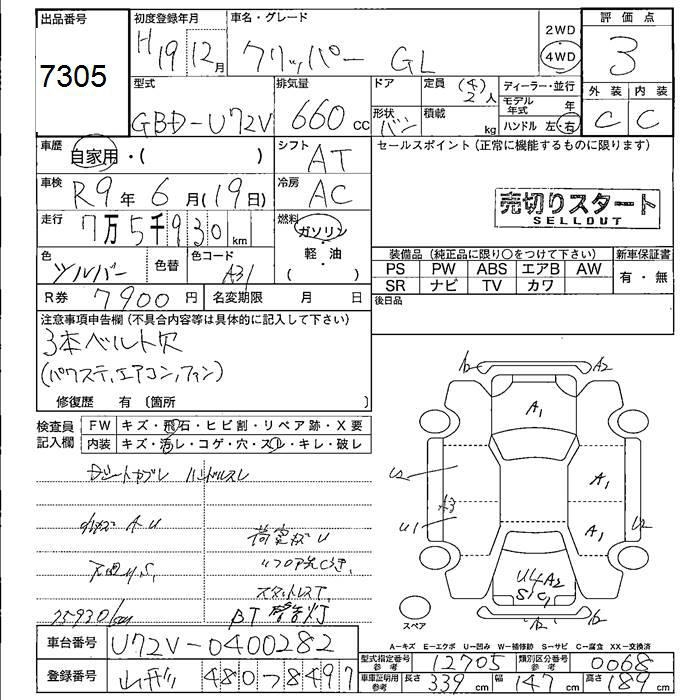 出品番号 初度登録年月 車名・グレード 評価点
7305 H19 12月 クリッパー GL 2WD 4WD 3
型式 排気量 ドア 定員 (4) 2人 ディーラー・並行 外装 内装
GBD-U72V 660cc 形状 バン 積載 kg モデル年式 年 ハンドル 左・右 C C
車歴 自家用・( ) シフト AT セールスポイント(正常に機能するものに限ります)
車検 R9年6月(19日) 冷房 AC
売切りスタート
SELLOUT
走行 7万5千930km 燃料 ガソリン・軽油 ( )
色 シルバー 色替 色コード A31
装備品(純正品に限り○をつけて下さい) 新車保証書
PS PW ABS エアB AW 有・無
SR ナビ TV カワ
R券 7900円 名変期限 月 日 後日品
注意事項申告欄(不具合内容等は具体的に記入して下さい)
3本ベルト欠
(パワステ,エアコン,ファン)
修復歴 有〔箇所 〕
検査員記入欄 FW キズ・飛石・ヒビ割・リペア跡・X要
内装 キズ・汚レ・コゲ・穴・スレ・キレ・破レ
ハンドルスレ
荷室キズU
スタットレスT
75930km BT警告灯
A2 A2
A1
U2 A1
A3
U1 A1 U2
U4 A2
S C1
A2
スペア
A-キズ E-エクボ U-凹み W-補修跡 S-サビ C-腐食 XX-交換済
車台番号 U72V-0400282
型式指定番号 参考 12705 類別区分番号 参考 0068
登録番号 480 8497
車庫証明用 参考 長さ 339cm 幅 147cm 高さ 189cm